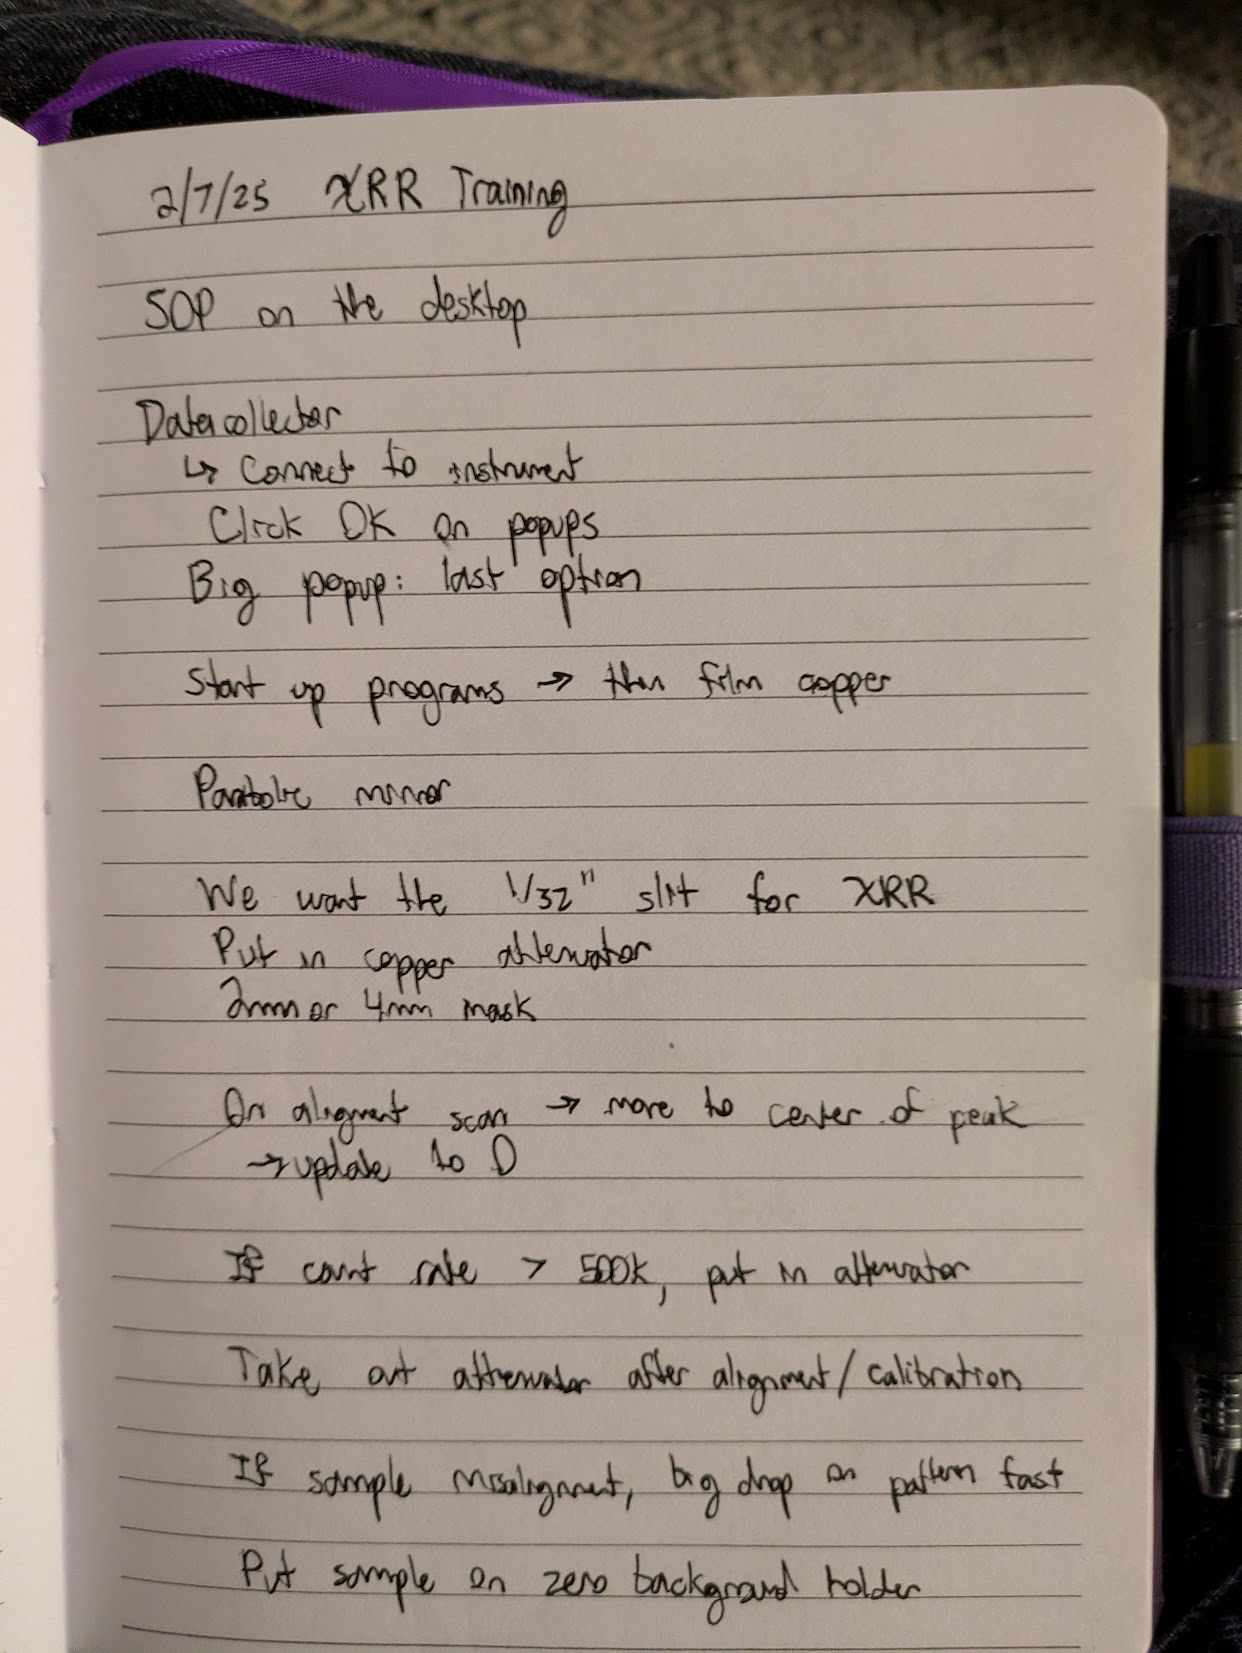 2/7/25 XRR Training
SOP on the desktop
Data collector
↳ Connect to instrument
Click OK on popups
Big popup: last option
Start up programs → thin film copper
Parabolic mirror
We want the 1/32" slit for XRR
Put in copper attenuator
2mm or 4mm mask
On alignment scan → move to center of peak
→ update to 0
If count rate > 500k, put in attenuator
Take out attenuator after alignment/calibration
If sample misalignment, big drop on pattern fast
Put sample on zero background holder